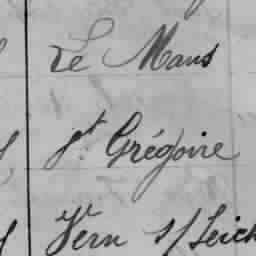 Le Mans
St. Grégoire
Vern s/Seich